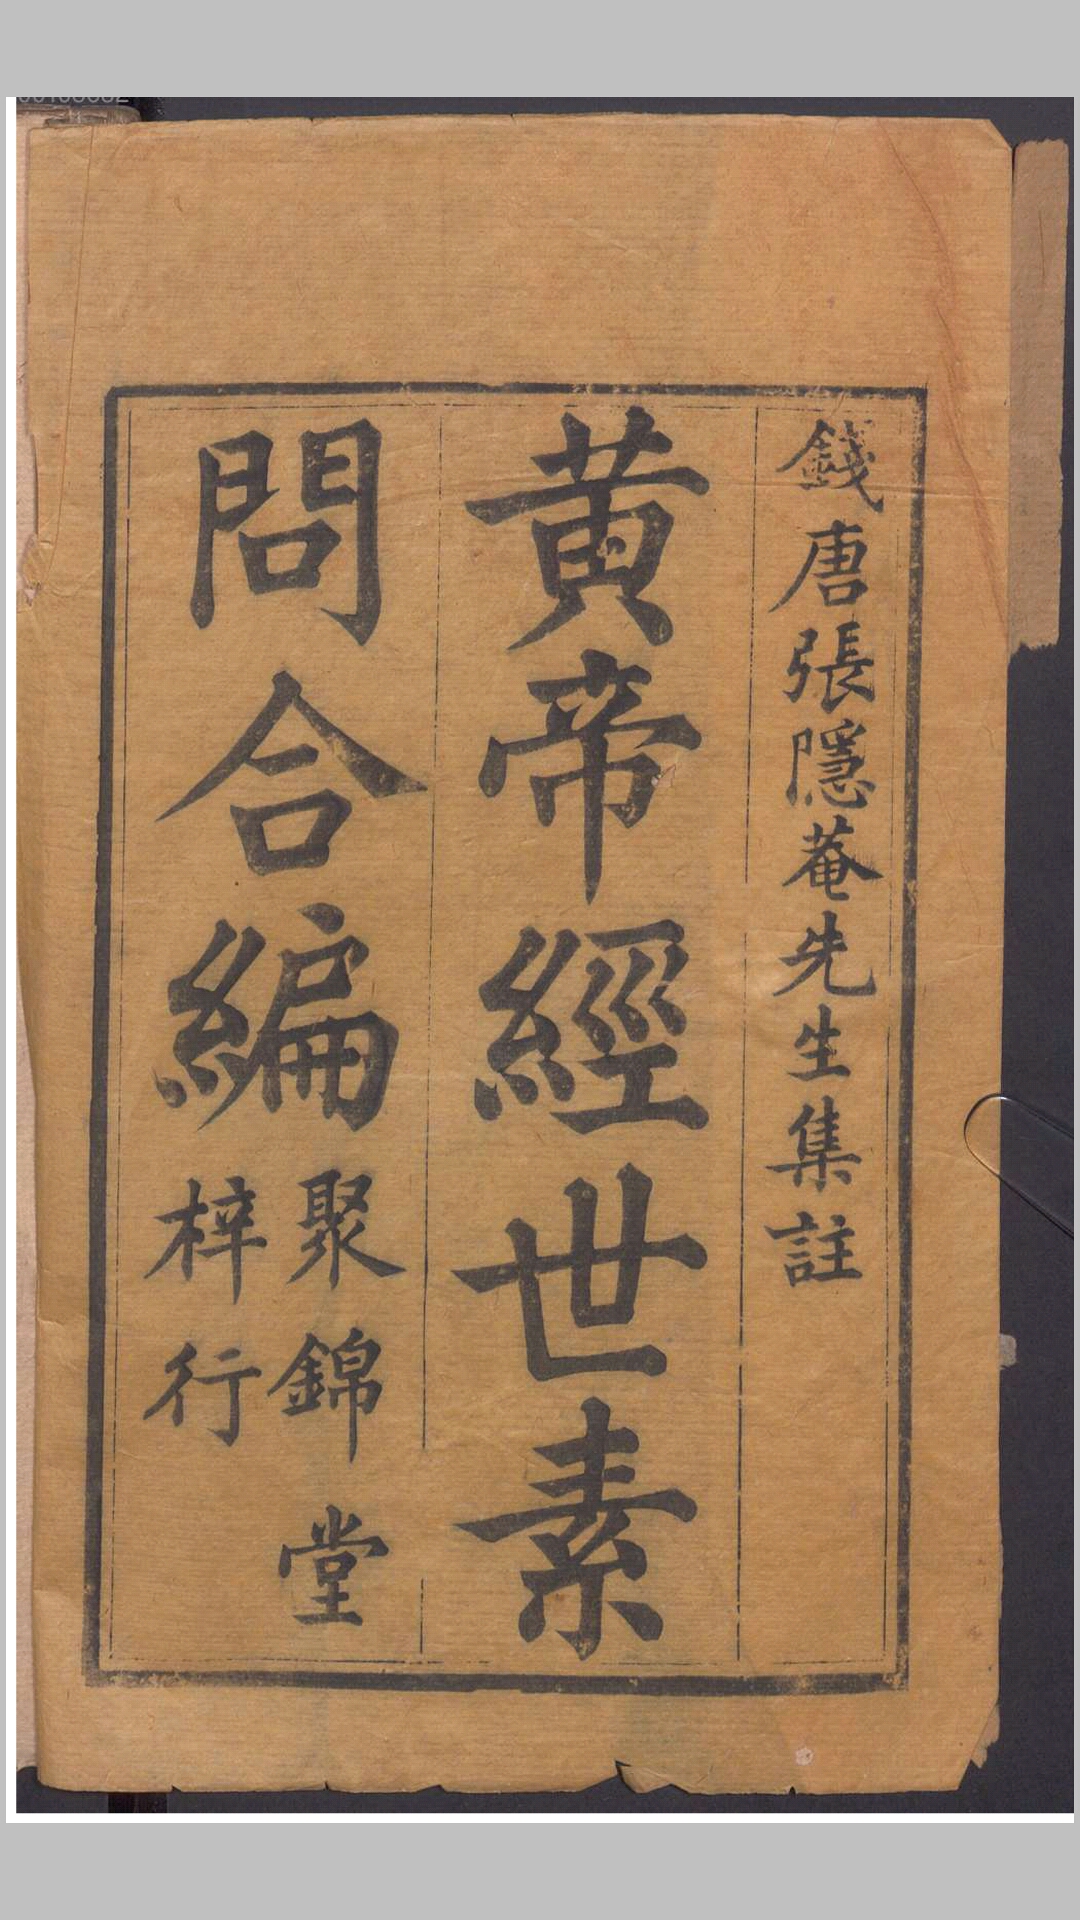 錢唐張隱菴先生集註
黃帝經世素
問合編
聚錦堂
梓行